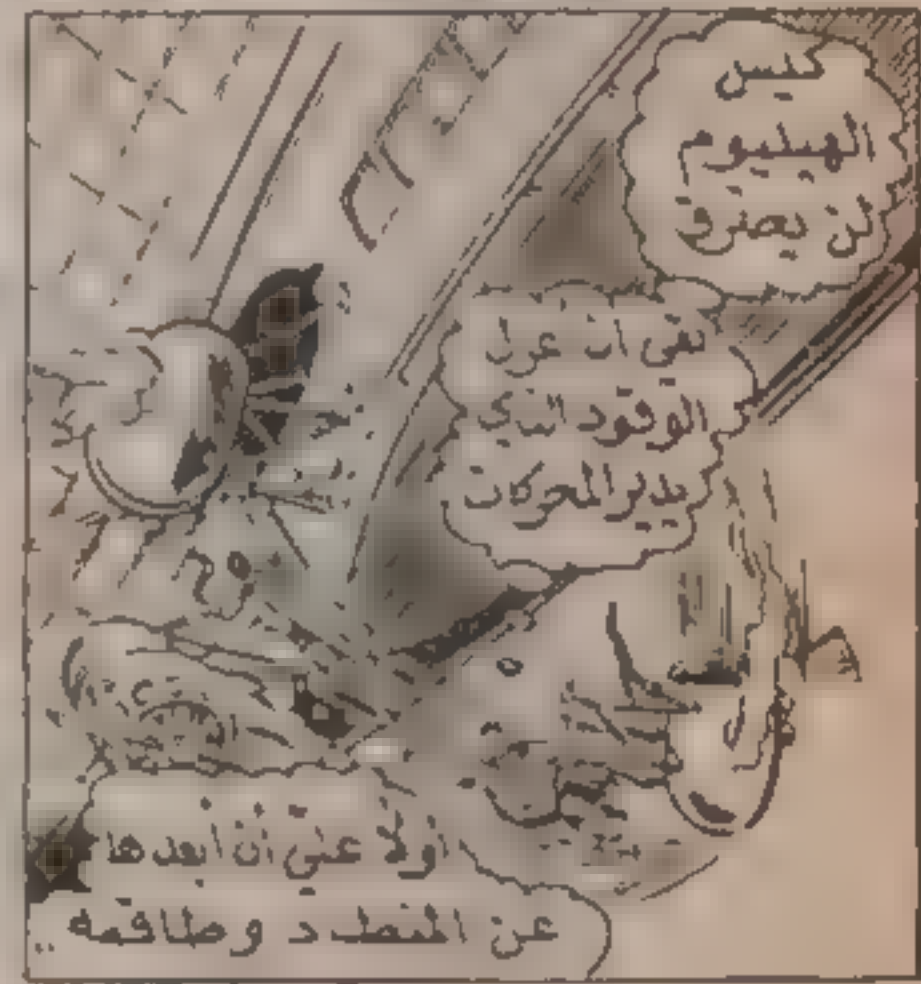 كيس
الهيليوم
لن يحترق
بقى أن عزل
الوقود الذي
يدير المحركات
أولاً عليّ أن أبعدها
عن المنطاد وطاقمه ..